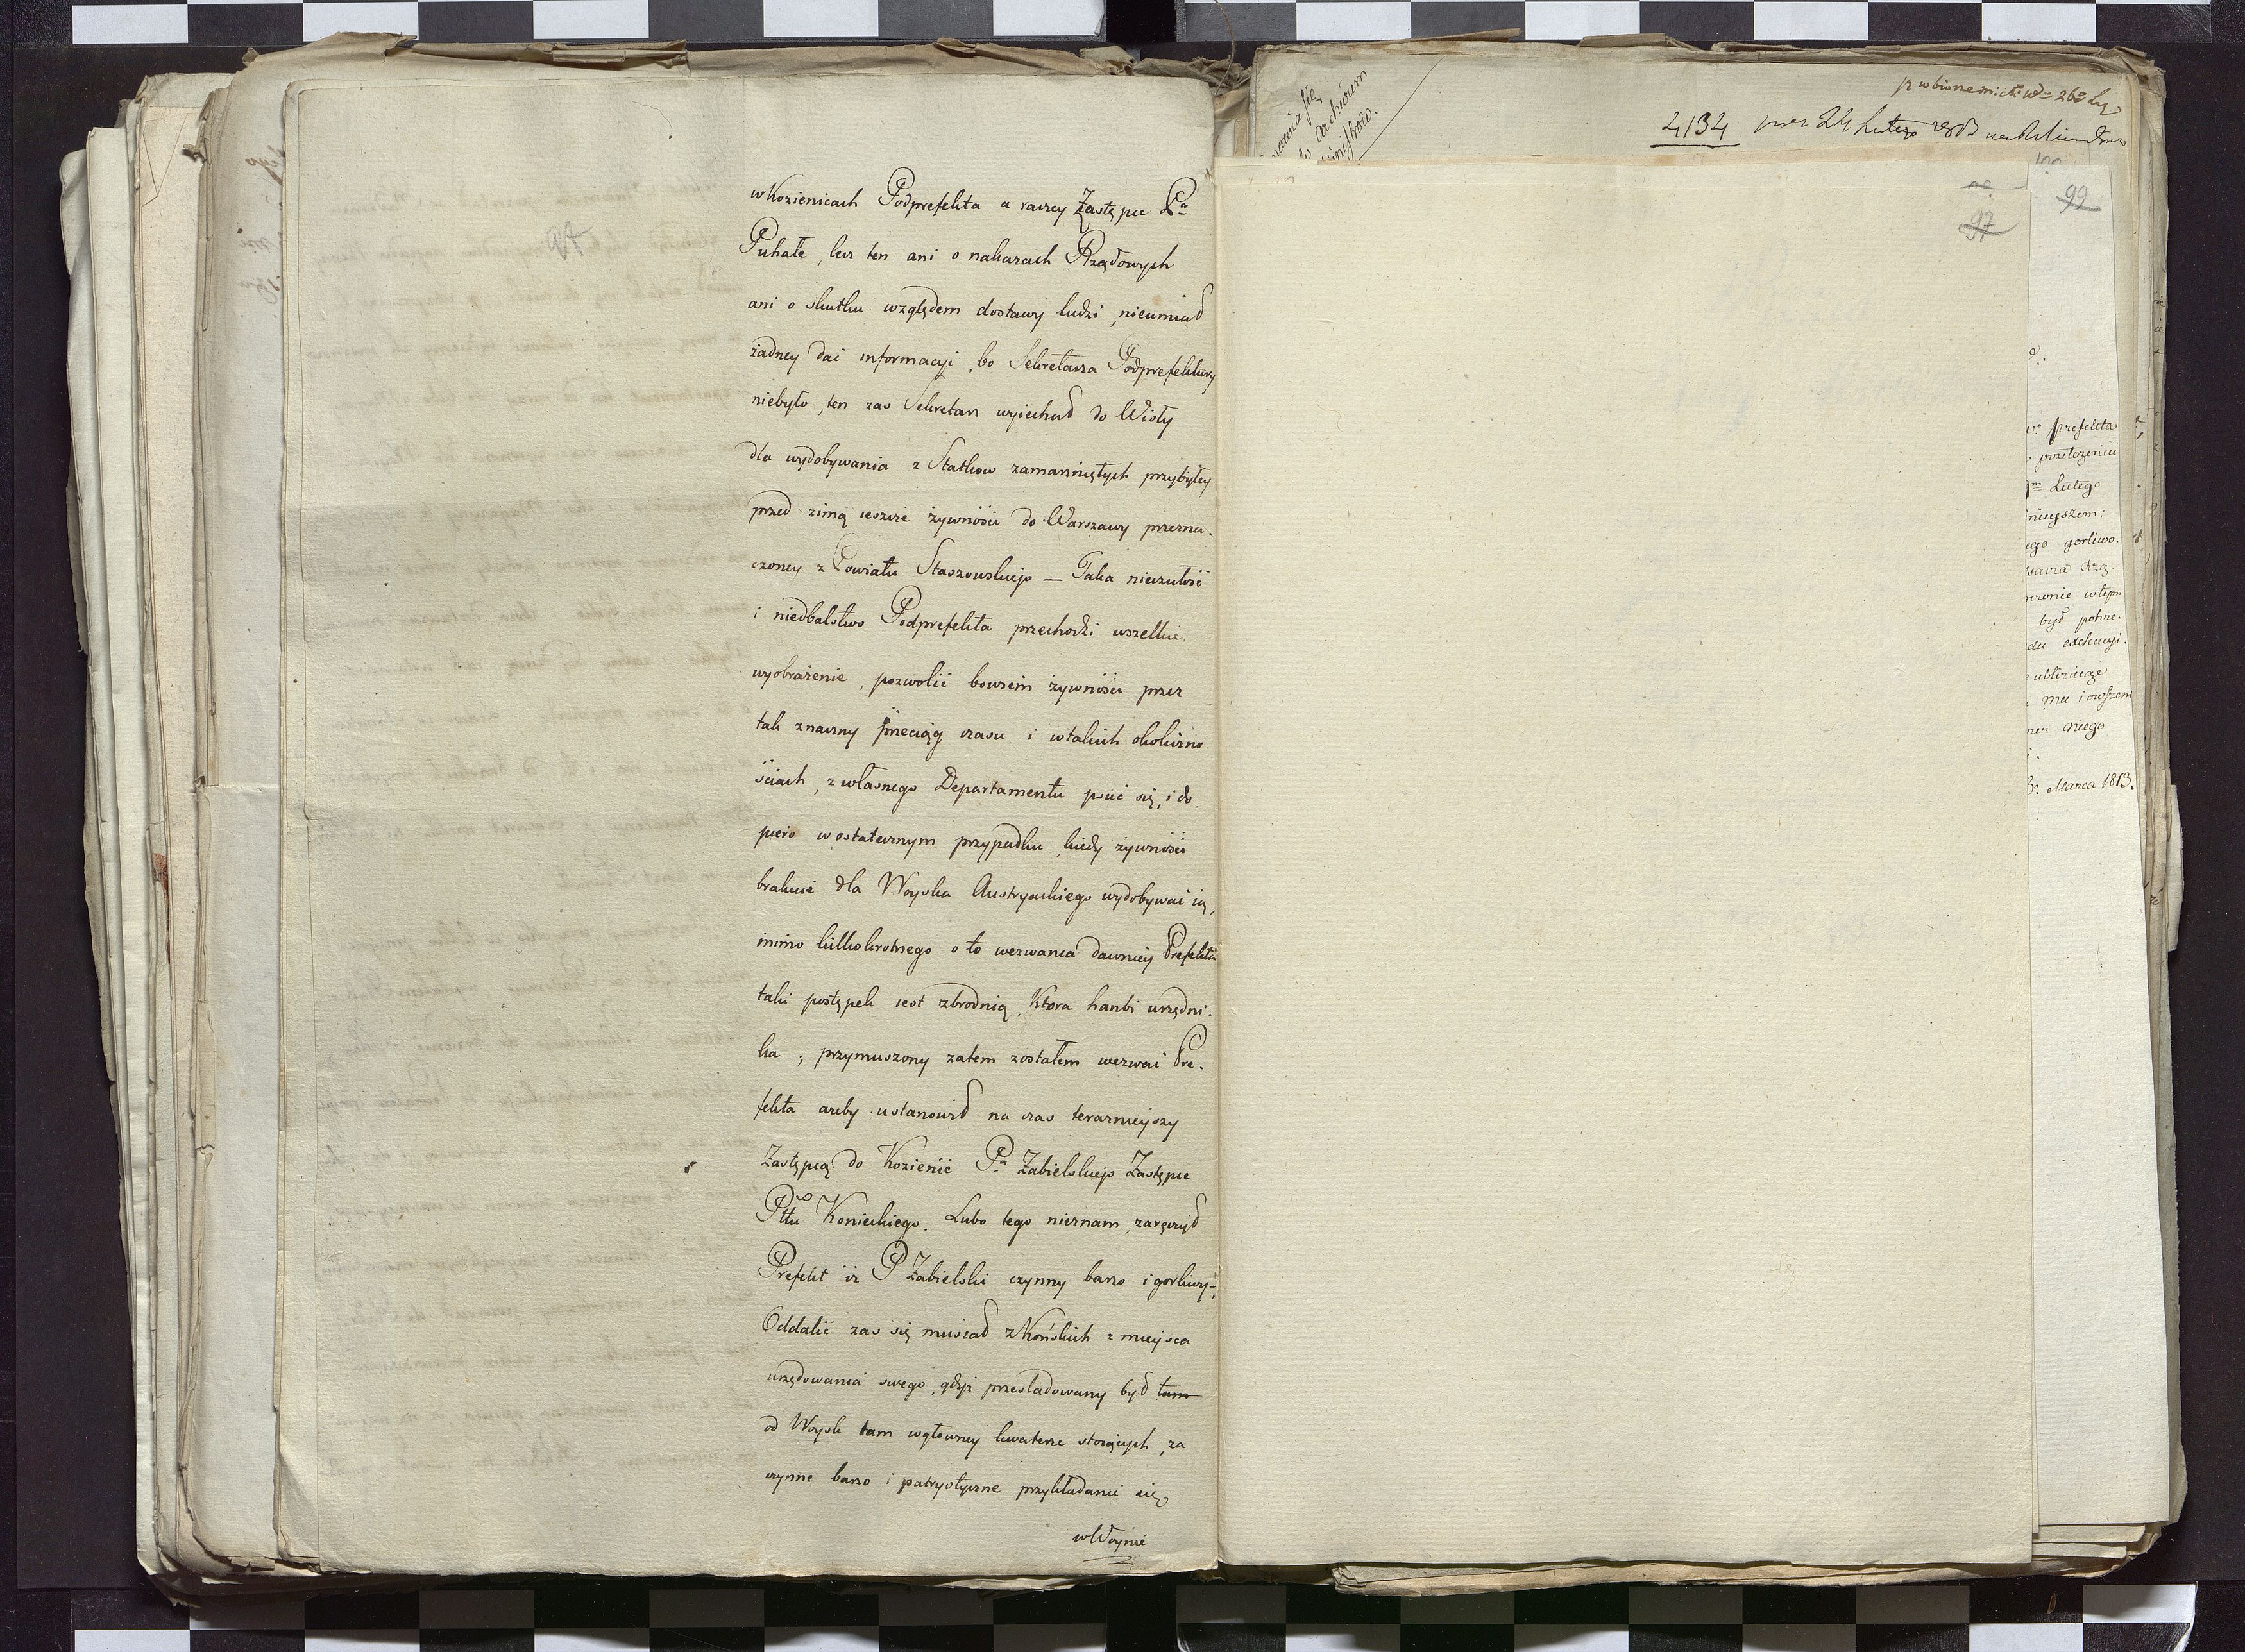 w Kozienicach Podprefekta a raczey Zastępcę Pa
Puhałe, lecz ten ani o nakazach Rządowych
ani o skutku względem dostawy ludzi, nieumiał
żadney dać informacyi, bo Sekretarza Podprefektury
niebyło, ten zas Sekretarz wyiechał do Wisły
dla wydobywania z Statkow zamarzniętych przybyłey
przed zimą ieszcze żywności do Warszawy przezna-
czoney z Powiatu Staszowskiego — Taka nieczułość
i niedbalstwo Podprefekta przechodzi wszelkie
wyobrażenie, pozwolić bowiem żywności przez
tak znaczny przeciąg czasu i w takich okoliczno
ściach, z własnego Departamentu psuć się, i do-
piero w ostatecznym przypadku, kiedy żywności
braknie dla Woyska Austryackiego wydobywać ią,
mimo kilkokrotnego o to wezwania dawniey Prefekta
taki postępek iest zbrodnią, Ktora hanbi urzędni-
ka; przymuszony zatem zostałem wezwać Pre-
fekta ażeby ustanowił na czas teraznieyszy
Zastępcą do Kozienic Pa Zabielskiego Zastępcę
Ptu Konieckiego. Lubo tego nieznam, zaręczył
Prefekt iż P Zabielski czynny barzo i gorliwy,
Oddalić zas się musiał z Końskich z mieysca
urzędowania swego, gdyż przesladowany był tam
od Woysk tam w głowney kwaterze stoiących, za
czynne barzo i patryotyczne przykładanie się
w Woynie
4134 24 Lutego
97
99
prefekta
przełożeniu
Lutego
nieyszem:
ego gorliwo-
był potrze-
du exekucyi.
ubliżaiąc
mu i owszem
niego
Marca 1813.